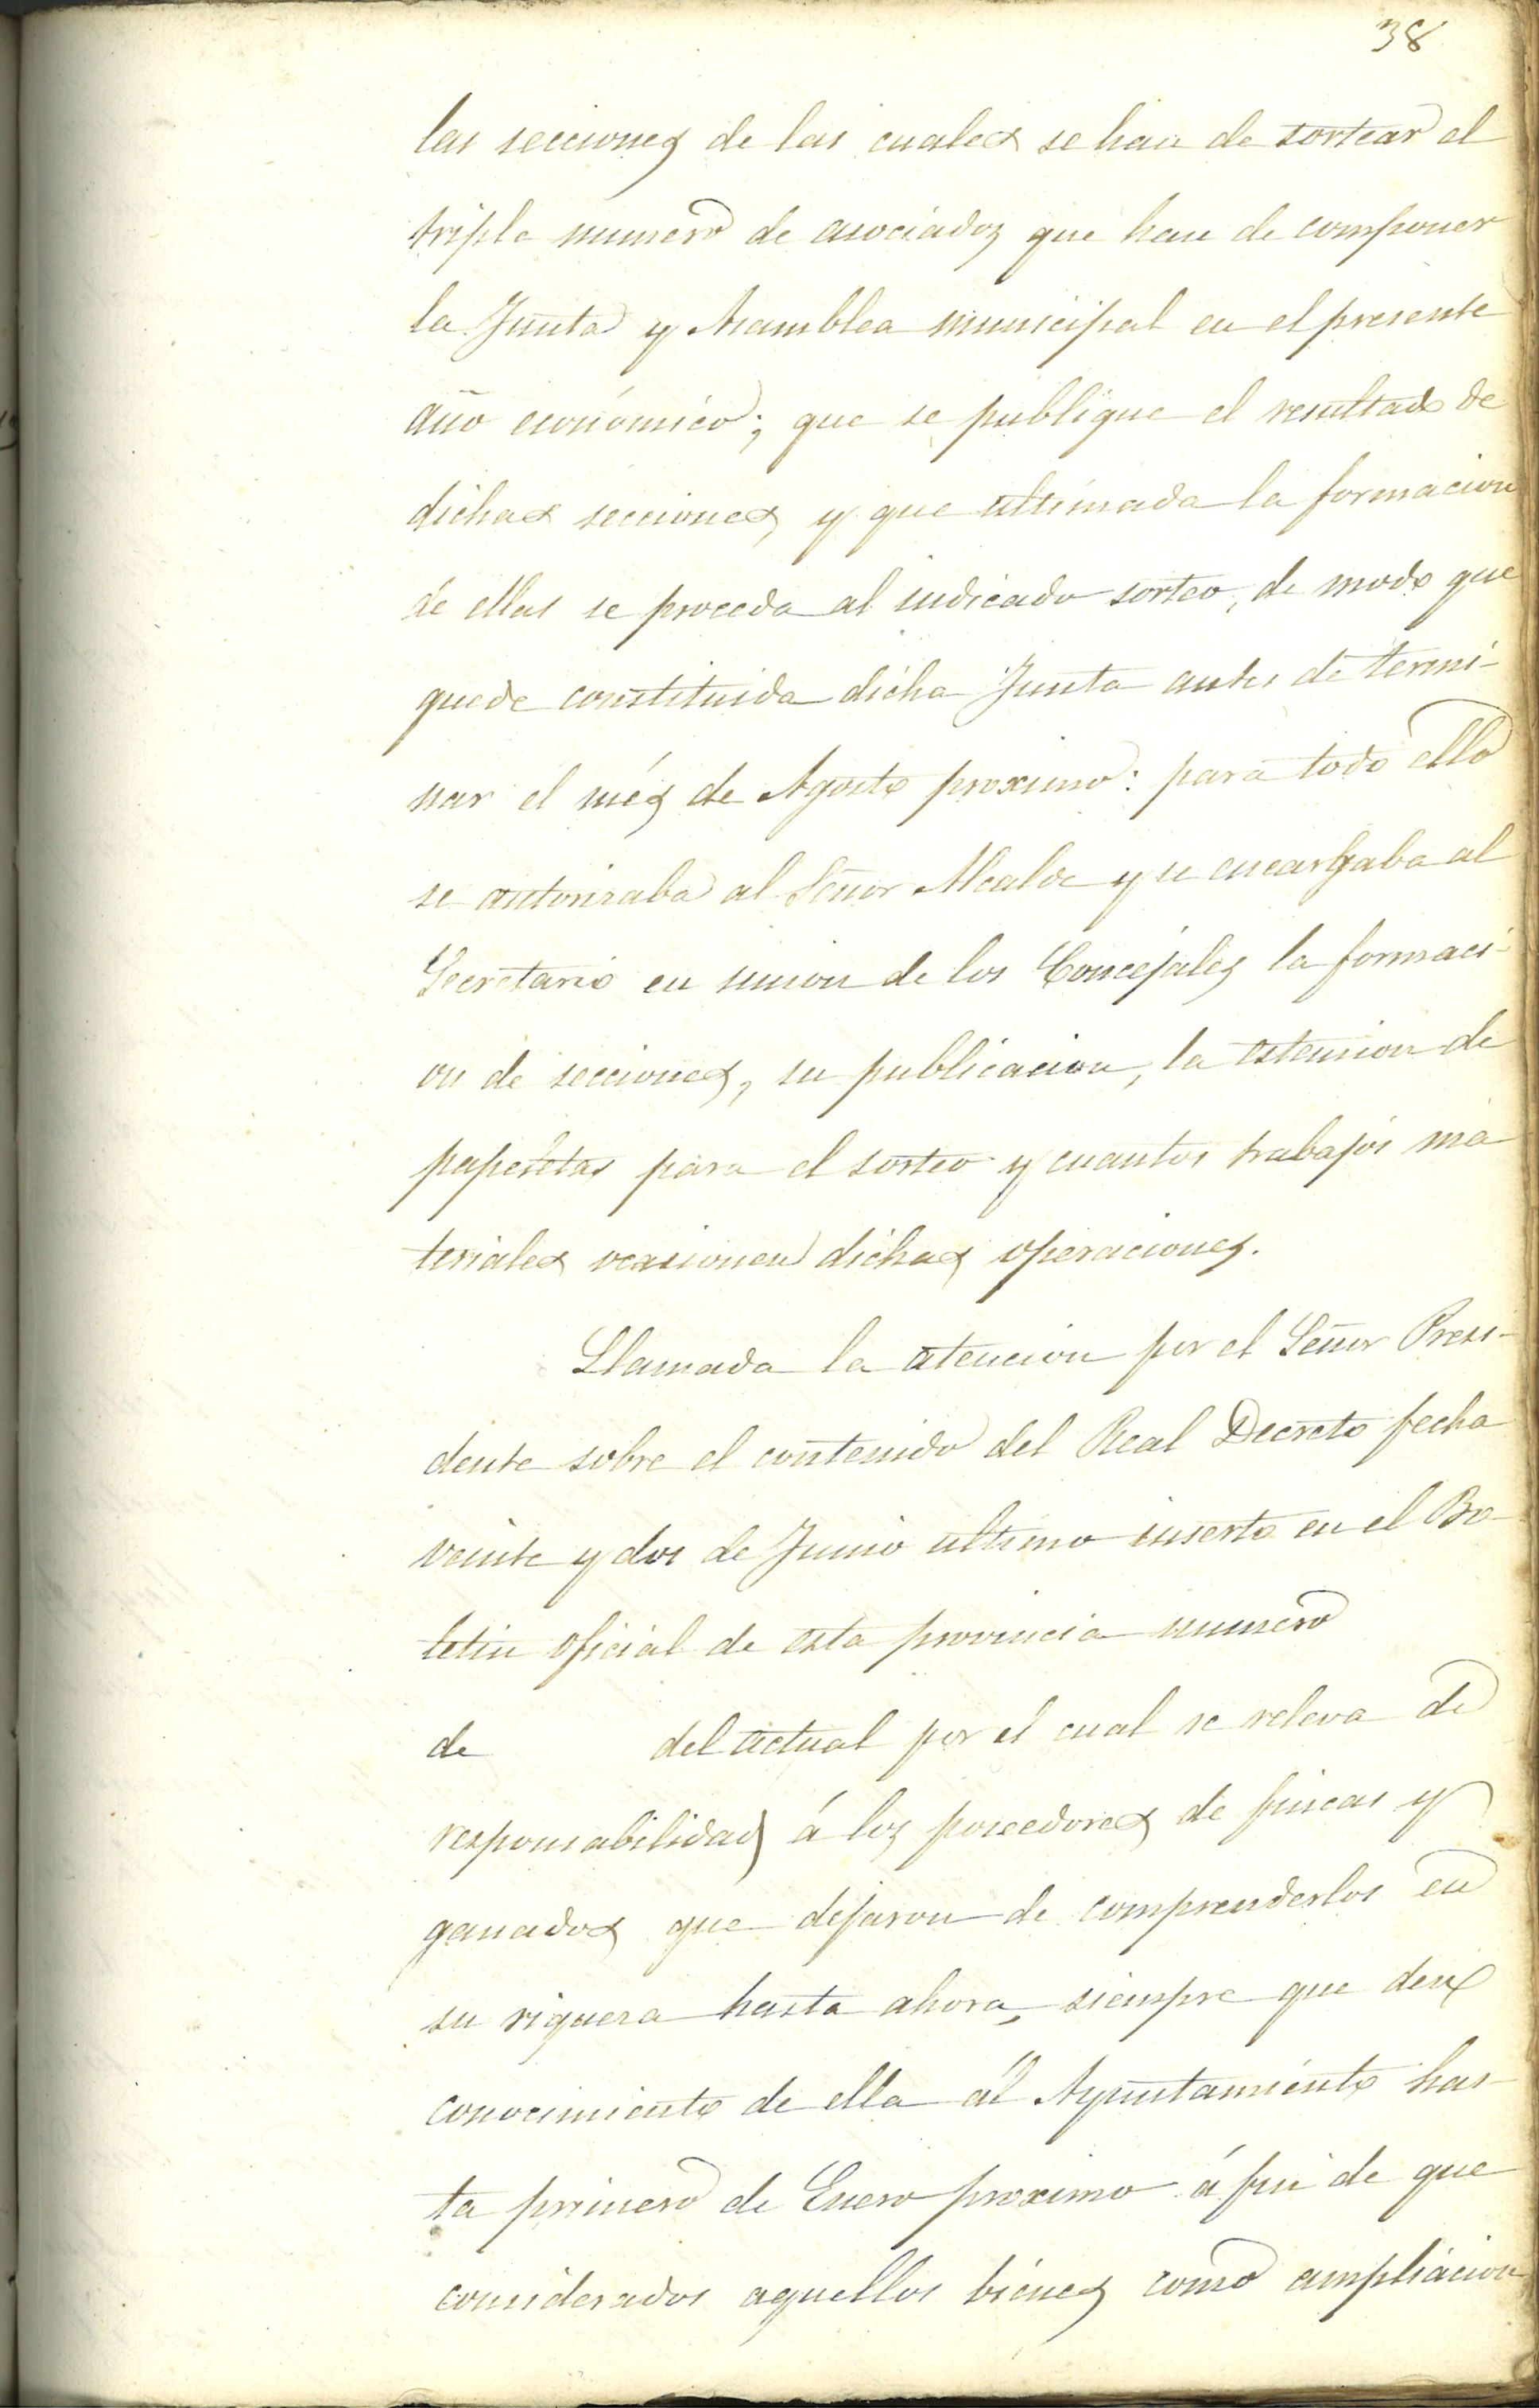 38
las secciones de las cuales se han de sortear el
triple numero de asociados que han de componer
la Junta y Asamblea municipal en el presente
año económico; que se publique el resultado de
dichas secciones, y que ultimada la formacion
de ellas se proceda al indicado sorteo, de modo que
quede constituida dicha Junta antes de termi-
nar el més de Agosto proximo: para todo ello
se autorizaba al Señor Alcalde y se encargaba al
Secretario en union de los Concejales la formaci-
on de secciones, su publicacion, la estension de
papeletas para el sorteo y cuantos trabajos ma
teriales ocasionen dichas operaciones.
Llamada la atencion por el Señor Presi-
dente sobre el contenido del Real Decreto fecha
veinte y dos de Junio ultimo inserto en el Bo-
letin oficial de esta provincia numero
de del actual por el cual se releva de
responsabilidad á los poseedores de fincas y
ganados que dejaron de comprenderlos en
su riqueza hasta ahora, siempre que den
conocimiento de ella al Ayuntamiento has-
ta primero de Enero proximo á fin de que
considerados aquellos bienes como ampliacion